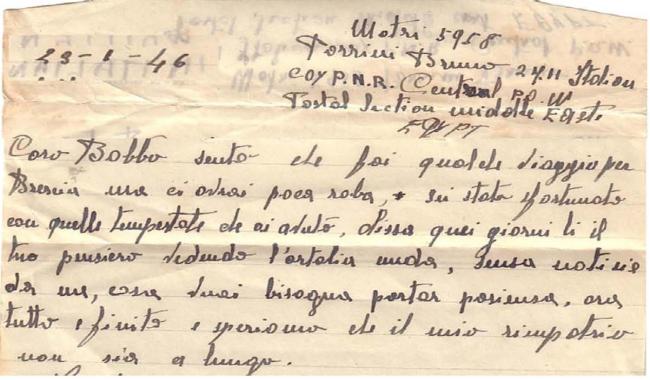 Motri 5958
23-1-46
Porrini Bruno 2411 Italian
COY P.N.R. Central P.O.W
Postal Section middle Easte
EGYPT
Caro Babbo sento che fai qualche viaggio per
Brescia ma ci avrai poca roba, sei stato sfortunato
con quelle tempestate che ai avuto, chissa quei giorni li il
tuo pensiero vedendo l'ortalia nuda, sensa notisie
da me, cosa vuoi bisogna portar pasiensa, ora
tutto e finito e speriamo che il mio rimpatrio
non sia a lungo.